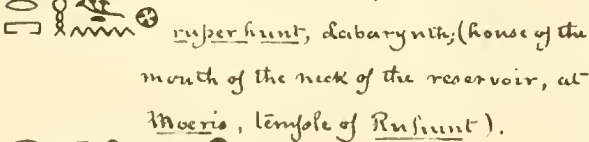 ruper hunt, Labarynth; (house of the
mouth of the neck of the reservoir, at
Moeris, temple of Ruhunt).